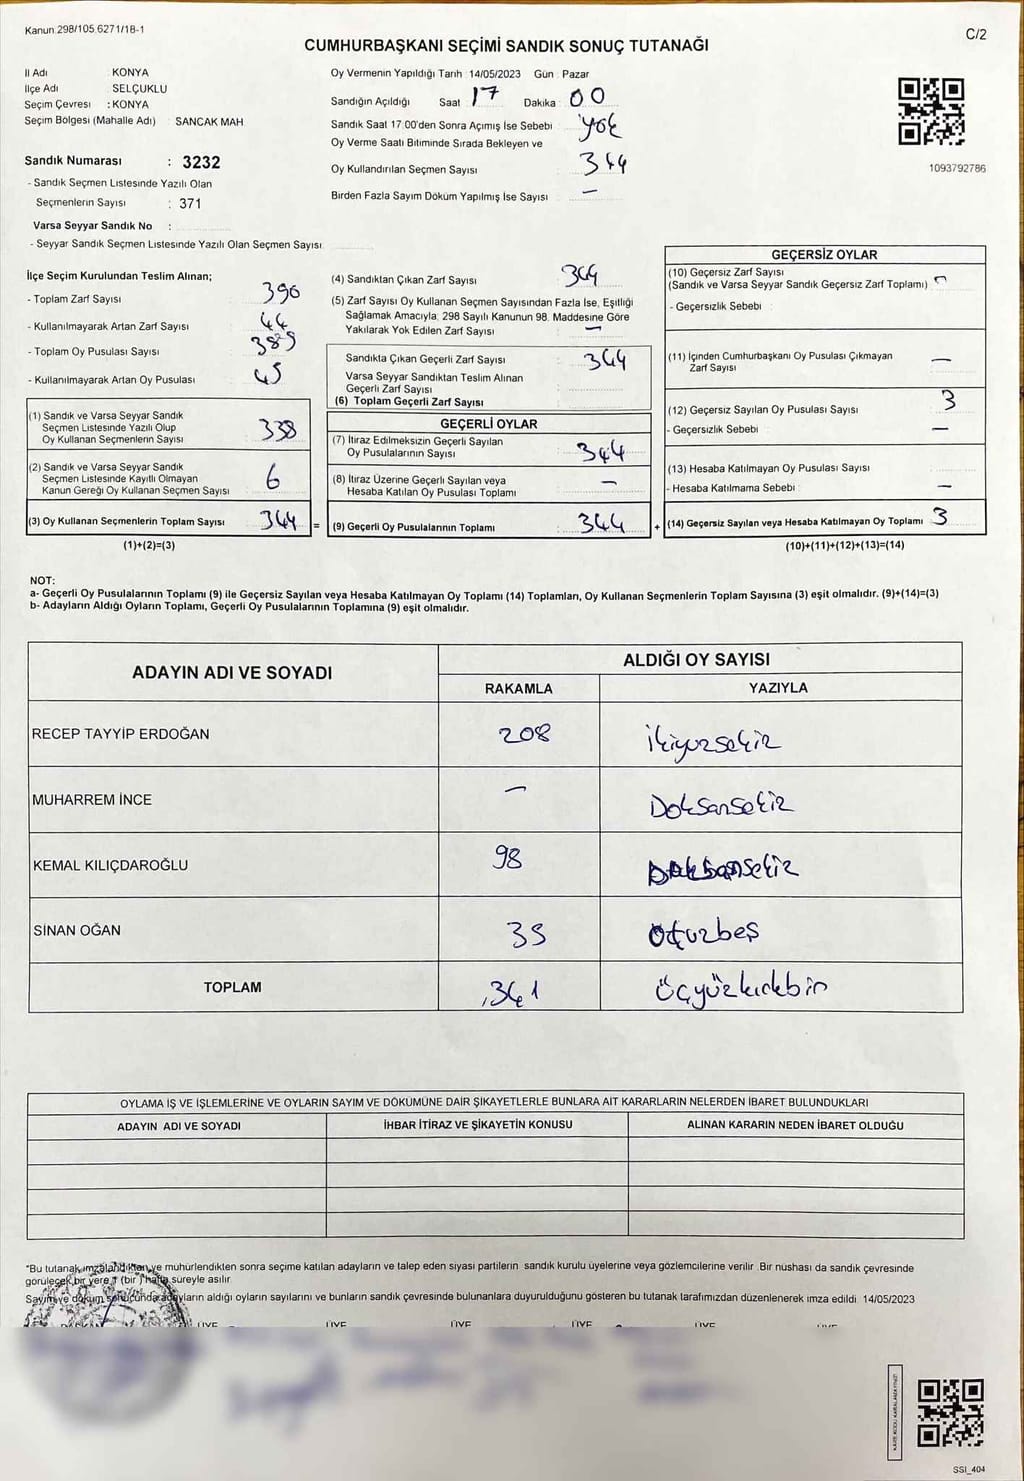 Kanun.298/105.6271/18-1
C/2
CUMHURBAŞKANI SEÇİMİ SANDIK SONUÇ TUTANAĞI
İl Adı : KONYA
İlçe Adı : SELÇUKLU
Seçim Çevresi : KONYA
Seçim Bölgesi (Mahalle Adı) : SANCAK MAH
Sandık Numarası : 3232
- Sandık Seçmen Listesinde Yazılı Olan
Seçmenlerin Sayısı : 371
Varsa Seyyar Sandık No :
- Seyyar Sandık Seçmen Listesinde Yazılı Olan Seçmen Sayısı
Oy Vermenin Yapıldığı Tarih : 14/05/2023 Gün : Pazar
Sandığın Açıldığı Saat : 17 Dakika : 00
Sandık Saat 17:00'den Sonra Açımış İse Sebebi : yok
Oy Verme Saati Bitiminde Sırada Bekleyen ve
Oy Kullandırılan Seçmen Sayısı : 344
Birden Fazla Sayım Döküm Yapılmış İse Sayısı : —
1093792786
İlçe Seçim Kurulundan Teslim Alınan;
- Toplam Zarf Sayısı : 390
- Kullanılmayarak Artan Zarf Sayısı : 44
- Toplam Oy Pusulası Sayısı : 389
- Kullanılmayarak Artan Oy Pusulası : 45
(1) Sandık ve Varsa Seyyar Sandık
Seçmen Listesinde Yazılı Olup
Oy Kullanan Seçmenlerin Sayısı : 338
(2) Sandık ve Varsa Seyyar Sandık
Seçmen Listesinde Kayıtlı Olmayan
Kanun Gereği Oy Kullanan Seçmen Sayısı : 6
(3) Oy Kullanan Seçmenlerin Toplam Sayısı : 344 =
(1)+(2)=(3)
(4) Sandıktan Çıkan Zarf Sayısı : 344
(5) Zarf Sayısı Oy Kullanan Seçmen Sayısından Fazla İse, Eşitliği
Sağlamak Amacıyla; 298 Sayılı Kanunun 98. Maddesine Göre
Yakılarak Yok Edilen Zarf Sayısı : —
Sandıkta Çıkan Geçerli Zarf Sayısı : 344
Varsa Seyyar Sandıktan Teslim Alınan
Geçerli Zarf Sayısı
(6) Toplam Geçerli Zarf Sayısı
GEÇERLİ OYLAR
(7) İtiraz Edilmeksizin Geçerli Sayılan
Oy Pusulalarının Sayısı : 344
(8) İtiraz Üzerine Geçerli Sayılan veya
Hesaba Katılan Oy Pusulası Toplamı : —
(9) Geçerli Oy Pusulalarının Toplamı : 344 +
GEÇERSİZ OYLAR
(10) Geçersiz Zarf Sayısı
(Sandık ve Varsa Seyyar Sandık Geçersiz Zarf Toplamı)
- Geçersizlik Sebebi :
(11) İçinden Cumhurbaşkanı Oy Pusulası Çıkmayan —
Zarf Sayısı
(12) Geçersiz Sayılan Oy Pusulası Sayısı : 3
- Geçersizlik Sebebi : —
(13) Hesaba Katılmayan Oy Pusulası Sayısı :
- Hesaba Katılmama Sebebi : —
(14) Geçersiz Sayılan veya Hesaba Katılmayan Oy Toplamı : 3
(10)+(11)+(12)+(13)=(14)
NOT:
a- Geçerli Oy Pusulalarının Toplamı (9) ile Geçersiz Sayılan veya Hesaba Katılmayan Oy Toplamı (14) Toplamları, Oy Kullanan Seçmenlerin Toplam Sayısına (3) eşit olmalıdır. (9)+(14)=(3)
b- Adayların Aldığı Oyların Toplamı, Geçerli Oy Pusulalarının Toplamına (9) eşit olmalıdır.
ADAYIN ADI VE SOYADI ALDIĞI OY SAYISI
RAKAMLA YAZIYLA
RECEP TAYYİP ERDOĞAN 208 İkiyüzsekiz
MUHARREM İNCE — Doksansekiz
KEMAL KILIÇDAROĞLU 98 Doksansekiz
SİNAN OĞAN 35 Otuzbeş
TOPLAM 341 Üçyüzkırkbir
OYLAMA İŞ VE İŞLEMLERİNE VE OYLARIN SAYIM VE DÖKÜMÜNE DAİR ŞİKAYETLERLE BUNLARA AİT KARARLARIN NELERDEN İBARET BULUNDUKLARI
ADAYIN ADI VE SOYADI İHBAR İTİRAZ VE ŞİKAYETİN KONUSU ALINAN KARARIN NEDEN İBARET OLDUĞU
*Bu tutanak imzalandıktan ve mühürlendikten sonra seçime katılan adayların ve talep eden siyasi partilerin sandık kurulu üyelerine veya gözlemcilerine verilir. Bir nüshası da sandık çevresinde
görülecek bir yere 1 (bir) hafta süreyle asılır.
Sayım ve döküm sonucunda adayların aldığı oyların sayılarını ve bunların sandık çevresinde bulunanlara duyurulduğunu gösteren bu tutanak tarafımızdan düzenlenerek imza edildi. 14/05/2023
BAŞKAN ÜYE ÜYE ÜYE ÜYE ÜYE
SSI_404